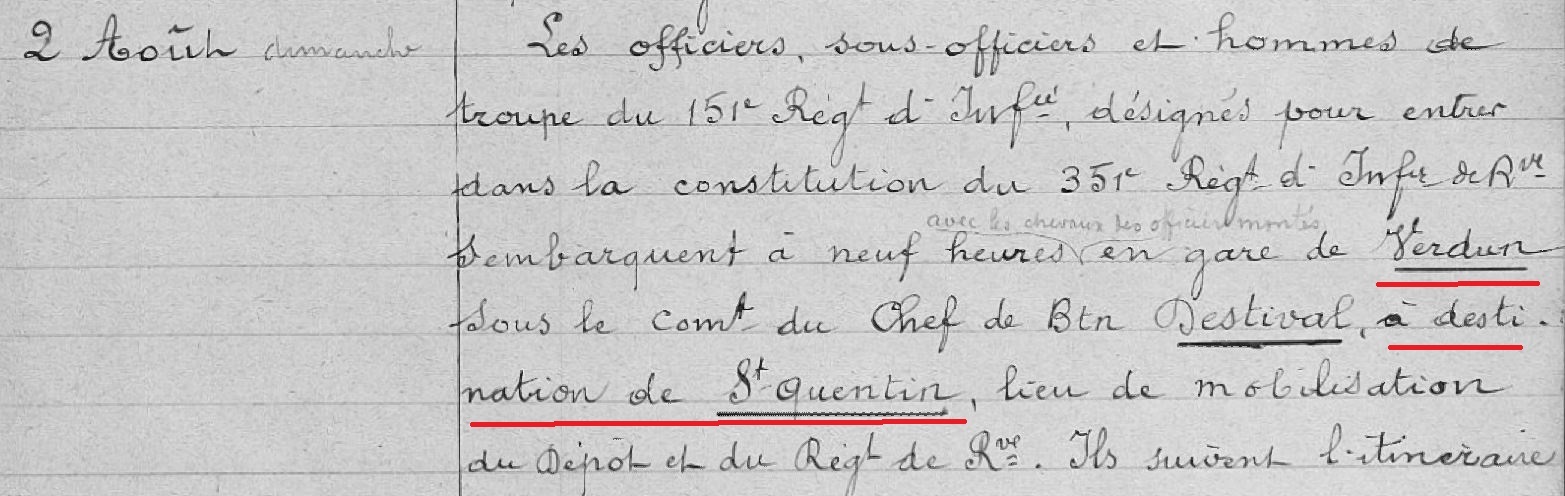 2 Août dimanche
Les officiers, sous-officiers et hommes de
troupe du 151e Régt d'Infie, désignés pour entrer
dans la constitution du 351e Régt d'Infie de Rve
avec les chevaux des officiers montés
s'embarquent à neuf heures en gare de Verdun
sous le comt du Chef de Btn Destival, à desti-
nation de St Quentin, lieu de mobilisation
du Dépôt et du Régt de Rve. Ils suivent l'itinéraire